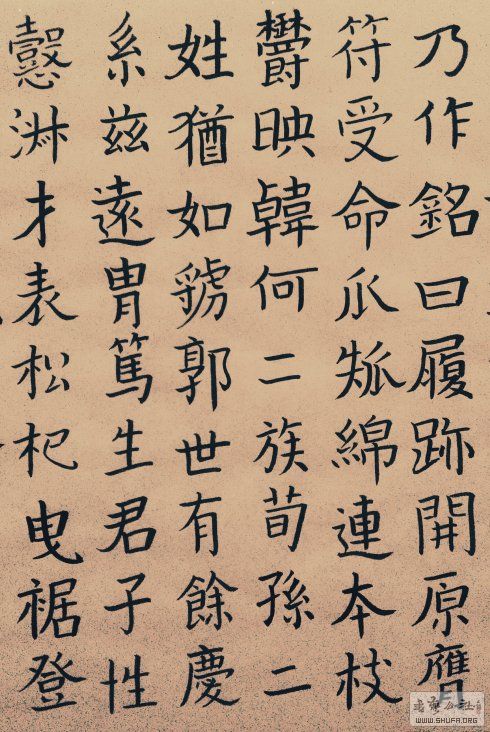 乃作銘曰履跡開原膺
符受命瓜瓞綿連本枝
欝映韓何二族荀孫二
姓猶如虢郭世有餘慶
系兹遠胄篤生君子性
懿淑才表松杞曳裾登
WWW.SHUFA.ORG